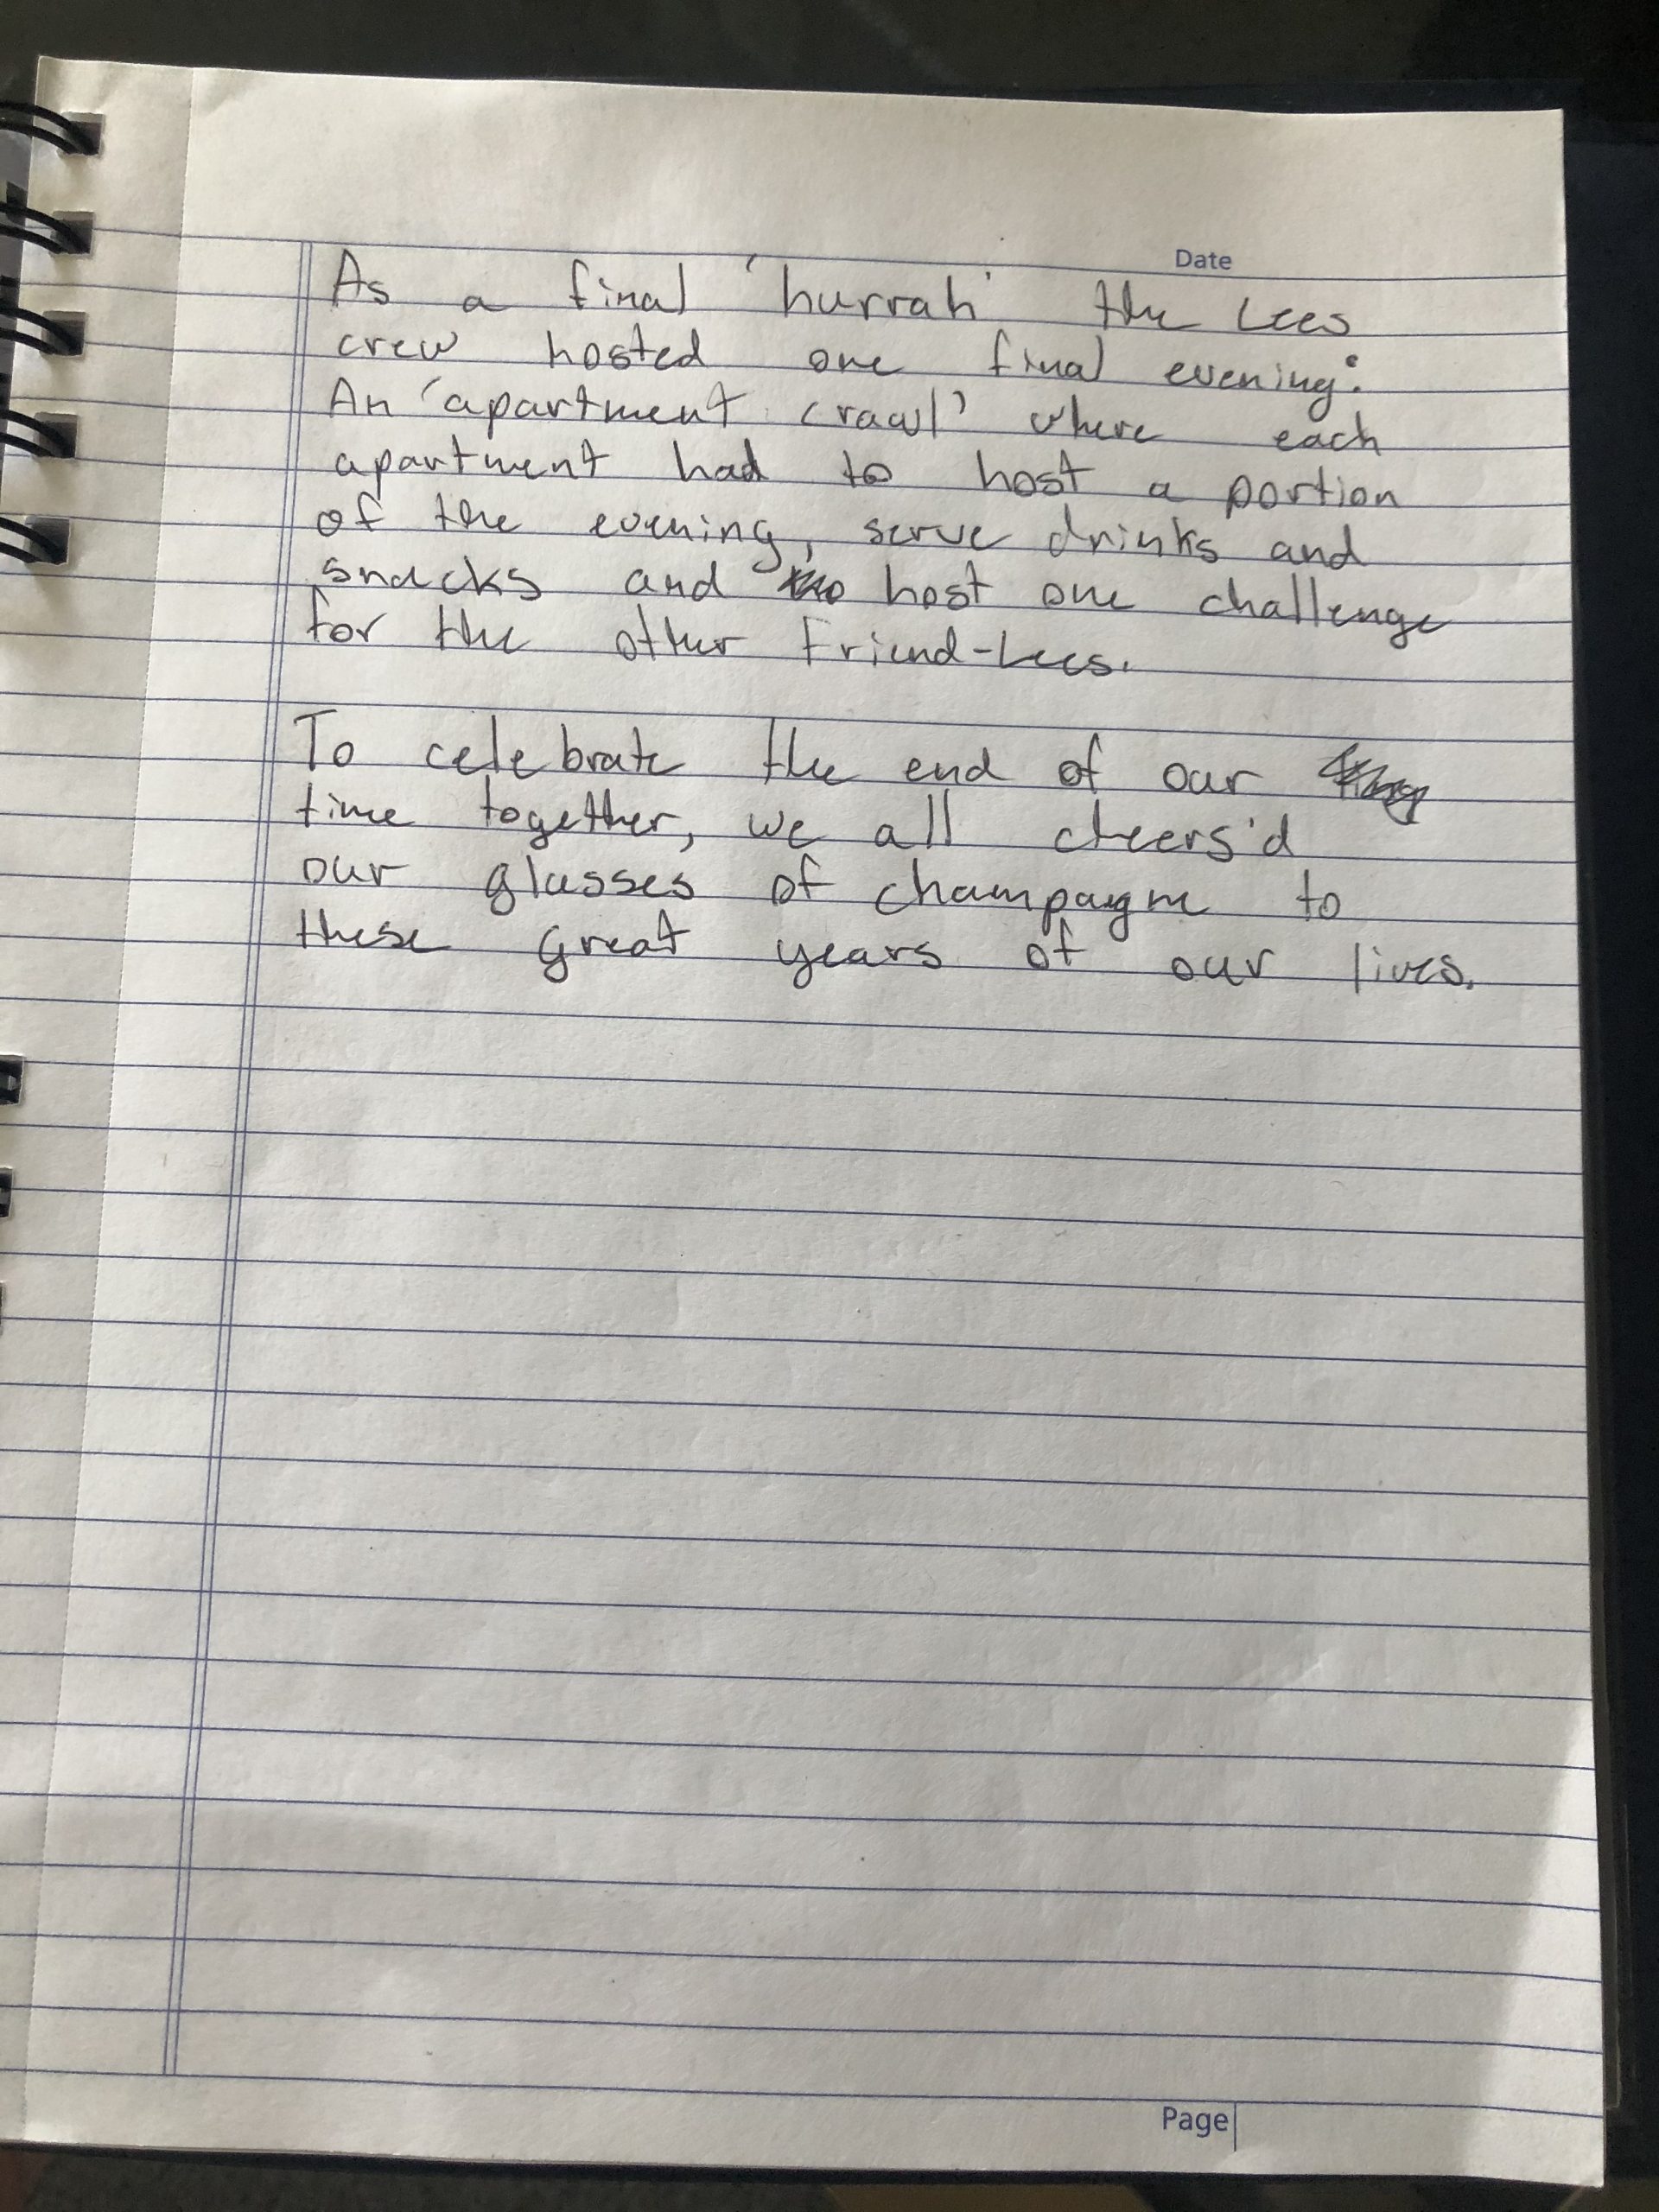 Date
As a final 'hurrah' the Lees
crew hosted one final evening:
An 'apartment crawl' where each
apartment had to host a portion
of the evening, serve drinks and
snacks and host one challenge
for the other Friend-Lees.
To celebrate the end of our
time together, we all cheers'd
our glasses of champagne to
these great years of our lives.
Page